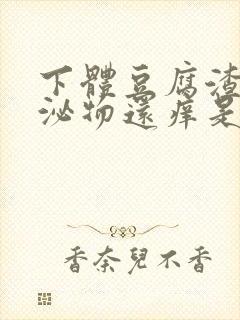 下體豆腐渣
泌物還癢是
香奈兒不香